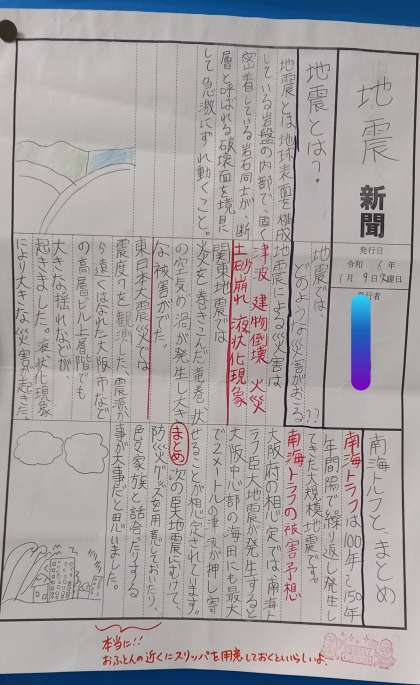 地震
新聞
発行日
令和6年
1月9日
発行者
地震とは？
地震とは地球表面を構成
している岩盤の内部で、固く
密着している岩石同士が、断
層と呼ばれる破壊面を境目に
して、急激にずれ動くこと。
地震では、
どのような災害がおきる??
地震による災害は
津波 建物倒壊 火災
土砂崩れ 液状化現象
関東地震では
火災を巻きこんだ竜巻状
の空気の渦が発生し大き
な被害がでた。
東日本大震災では
震度7を観測した、震源か
ら遠くはなれた大阪市など
の高層ビル上層階でも
大きな揺れなどが、
起きました。液状化現象
により大きな災害が起きた。
南海トルフと、まとめ
南海トラフは100年〜150年
年間隔で繰り返し発生し
てきた大規模地震です。
南海トラフの被害予想
大阪府の想定では、南海ト
ラフ巨大地震が発生すると
大阪中心部の梅田にも最大
で2メートルの津波が押し寄
せることが想定されています。
まとめ 次の巨大地震にむけて、
防災グッズを用意しておいたり、
色々家族と話合たりする
事が大事だと思いました。
本当に!!
おふとんの近くにスリッパを用意しておくといいらしいよ。